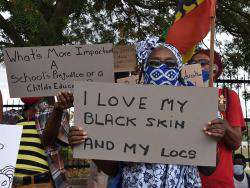 What's More Important
A
School's Prejudice or a
I LOVE MY
BLACK SKIN
AND MY LOCS